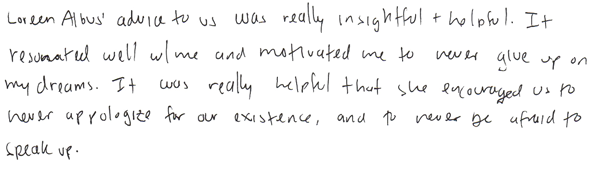 Loreen Albus' advice to us was really insightful + helpful. It
resonated well w/me and motivated me to never give up on
my dreams. It was really helpful that she encouraged us to
never appologize for our existence, and to never be afraid to
speak up.